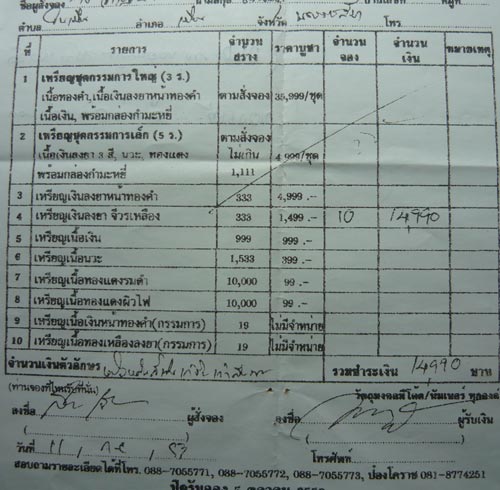 ชื่อผู้สั่งจอง
ตำบล อำเภอ จังหวัด โทร.
ที่ รายการ จำนวนสร้าง ราคาบูชา จำนวนจอง จำนวนเงิน หมายเหตุ
1 เหรียญชุดกรรมการใหญ่ (3 ร.)
เนื้อทองคำ,เนื้อเงินลงยาหน้าทองคำ ตามสั่งจอง 35,999/ชุด
เนื้อเงิน, พร้อมกล่องกำมะหยี่
2 เหรียญชุดกรรมการเล็ก (5 ร.) ตามสั่งจอง
เนื้อเงินลงยา 3 สี, นวะ, ทองแดง ไม่เกิน 4,999/ชุด
พร้อมกล่องกำมะหยี่ 1,111
3 เหรียญเงินลงยาหน้าทองคำ 333 4,999 .-
4 เหรียญเงินลงยา จีวรเหลือง 333 1,499 .- 10 14,990
5 เหรียญเนื้อเงิน 999 999 .-
6 เหรียญเนื้อนวะ 1,533 399 .-
7 เหรียญเนื้อทองแดงรมดำ 10,000 99 .-
8 เหรียญเนื้อทองแดงผิวไฟ 10,000 99 .-
9 เหรียญเนื้อเงินหน้าทองคำ(กรรมการ) 19 ไม่มีจำหน่าย
10 เหรียญเนื้อทองเหลืองลงยา(กรรมการ) 19 ไม่มีจำหน่าย
จำนวนเงินตัวอักษร รวมชำระเงิน 14990 บาท
(ท่านจองที่ไหนรับที่นั่น) วัตถุมงคลมีโค้ด/นัมเบอร์ ทุกองค์
ลงชื่อ ผู้สั่งจอง ลงชื่อ ผู้รับเงิน
วันที่ 11 โทรศัพท์
สอบถามรายละเอียดได้ที่โทร. 088-7055771, 088-7055772, 088-7055773, ป๋องโคราช 081-8774251